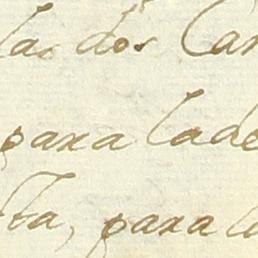 las dos Can
para lade
ta, para l